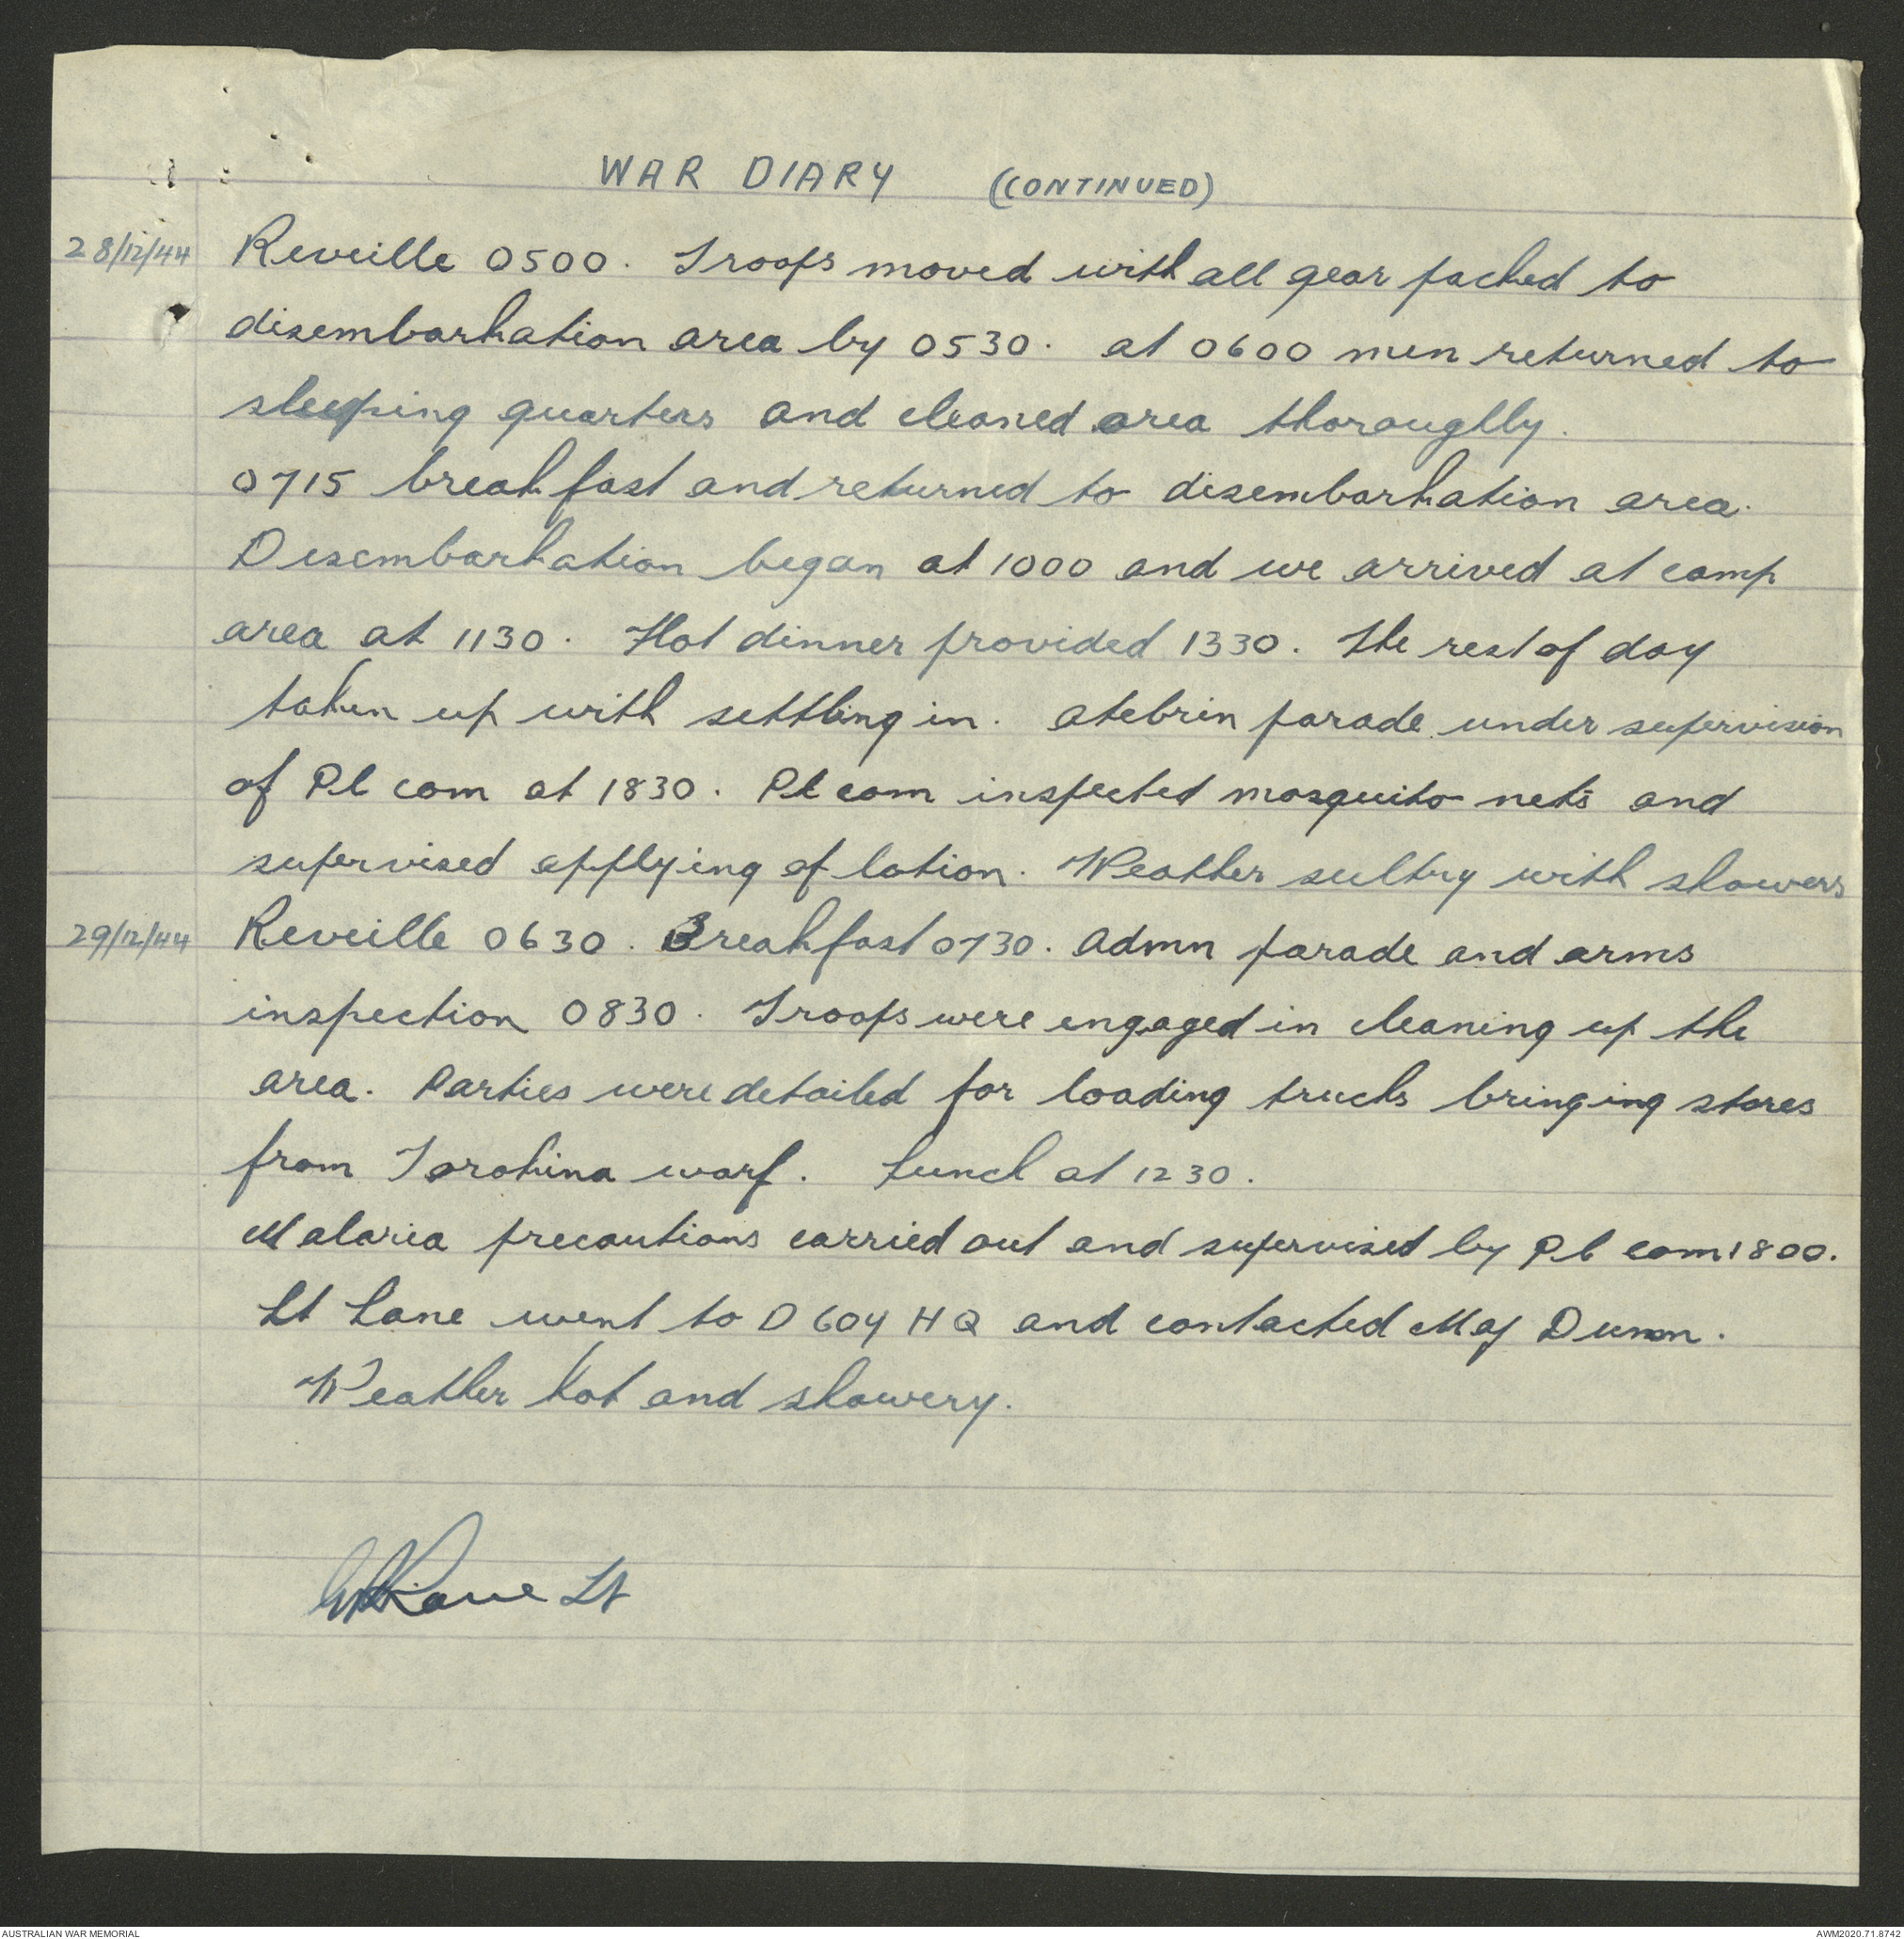 WAR DIARY (CONTINUED)
28/12/44 Reveille 0500. Troops moved with all gear packed to
disembarkation area by 0530. at 0600 men returned to
sleeping quarters and cleaned area thoroughly.
0715 breakfast and returned to disembarkation area.
Disembarkation began at 1000 and we arrived at camp
area at 1130. Hot dinner provided 1330. The rest of day
taken up with settling in. atebrin parade under supervision
of Pl com at 1830. Pl com inspected mosquito nets and
supervised applying of lotion. Weather sultry with showers
29/12/44 Reveille 0630. Breakfast 0730. Admn parade and arms
inspection 0830. Troops were engaged in cleaning up the
area. Parties were detailed for loading trucks bringing stores
from Torokina warf. Lunch at 1230.
Malaria precautions carried out and supervised by Pl com 1800.
Lt Lane went to D 604 HQ and contacted Maj Dunn.
Weather hot and showery.
Lane Lt
AUSTRALIAN WAR MEMORIAL
AWM2020.71.8742